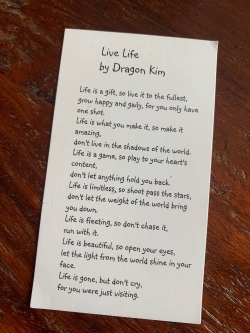 Live Life
by Dragon Kim
Life is a gift, so live it to the fullest,
grow happy and gaily, for you only have
one shot.
Life is what you make it, so make it
amazing,
don't live in the shadows of the world.
Life is a game, so play to your heart's
content,
don't let anything hold you back.
Life is limitless, so shoot pass the stars,
don't let the weight of the world bring
you down.
Life is fleeting, so don't chase it,
run with it.
Life is beautiful, so open your eyes,
let the light from the world shine in your
face.
Life is gone, but don't cry,
for you were just visiting.